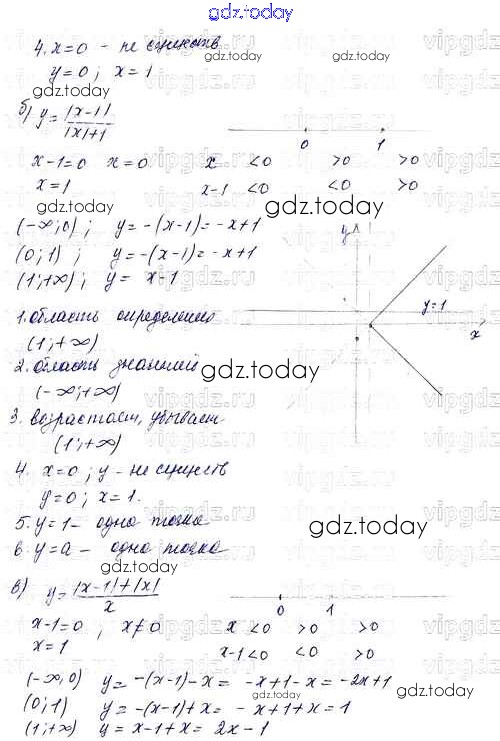 gdz.today
4. x=0 - не существ
y=0; x=1
gdz.today
gdz.today
gdz.today
б) y=|x-1|/|x|+1
0 1
x-1=0 x=0 x <0 >0 >0
x=1 x-1 <0 <0 >0
gdz.today
gdz.today
(-∞;0); y=-(x-1)=-x+1
(0;1); y=-(x-1)=-x+1
(1;+∞); y= x-1
y
y=1
x
1. область определения
(1;+∞)
2. область значений
gdz.today
(-∞;+∞)
3. возрастает, убывает
(1;+∞)
4. x=0; y - не существ
y=0; x=1.
5. y=1- одна точка
gdz.today
6. y=a - одна точка
gdz.today
в) y=|x-1|+|x|/x
0 1
x-1=0; x≠0 x <0 >0 >0
x=1 x-1<0 <0 >0
(-∞;0) y=-(x-1)-x= -x+1-x=-2x+1
gdz.today
gdz.today
(0;1) y=-(x-1)+x= -x+1+x=1
(1;+∞) y= x-1+x= 2x-1
vipgdz.ru